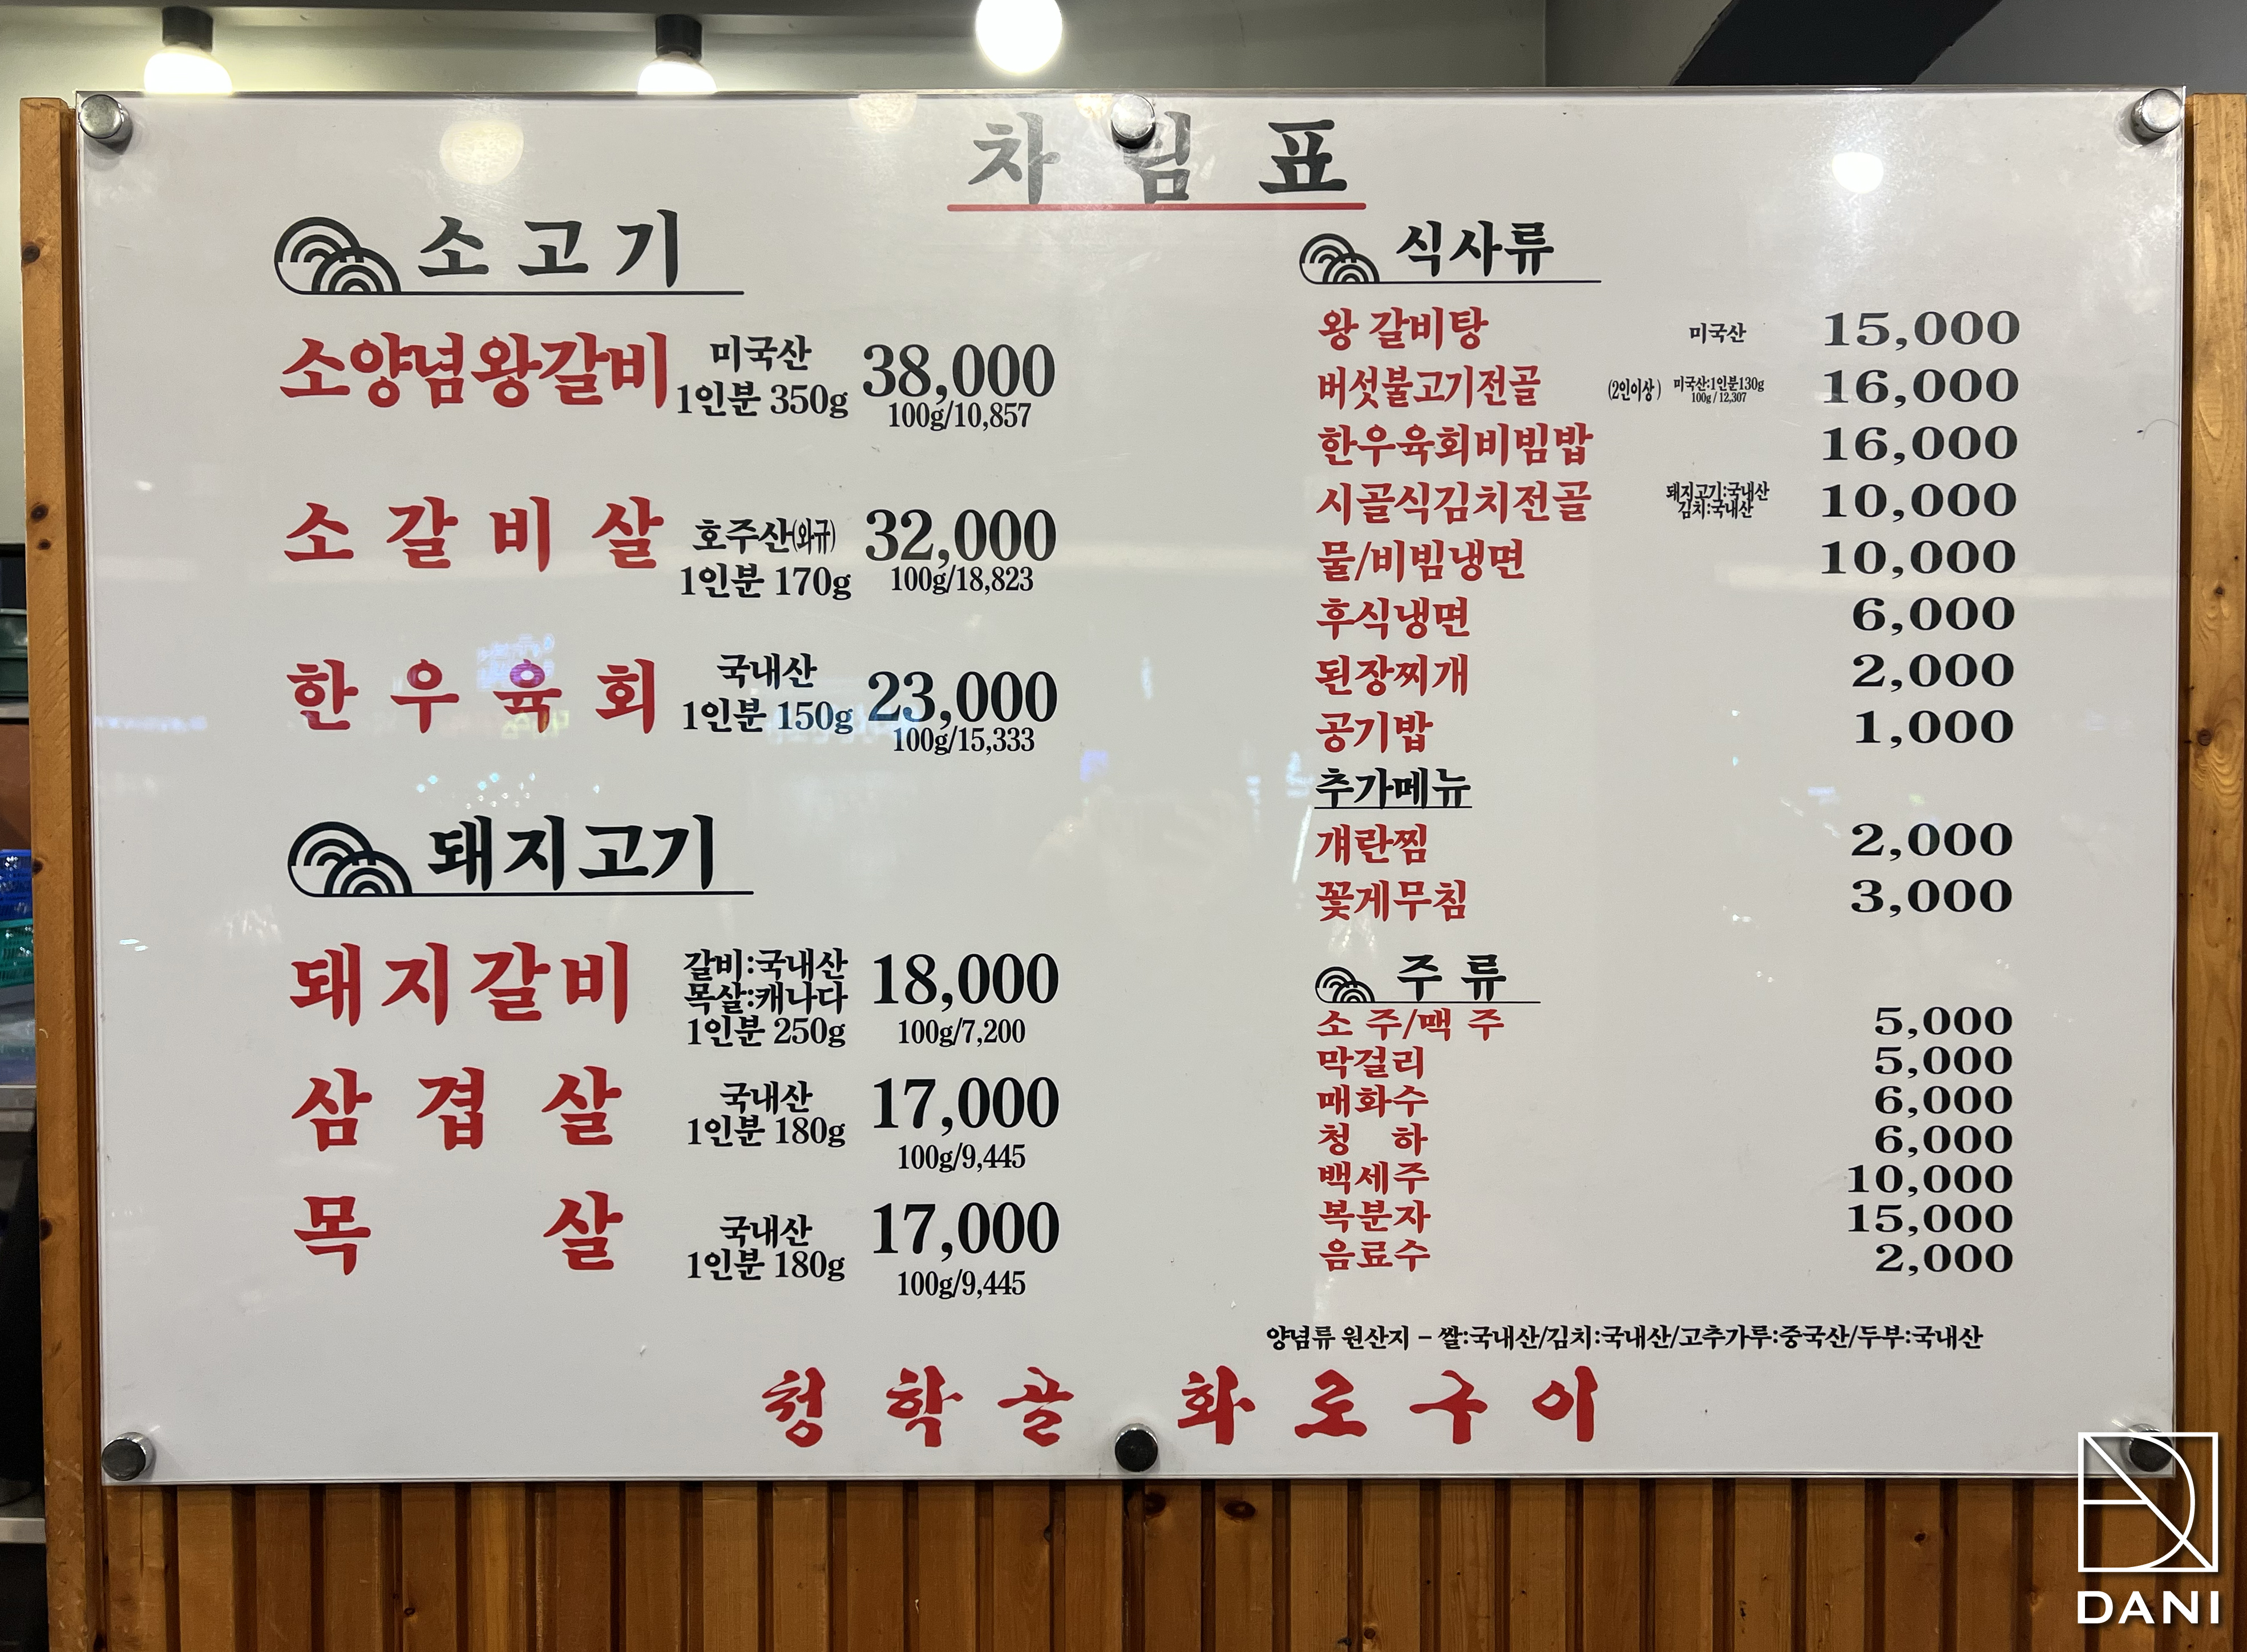 차림표
소고기
소양념왕갈비 미국산 1인분 350g 38,000 100g/10,857
소갈비살 호주산(와규) 1인분 170g 32,000 100g/18,823
한우육회 국내산 1인분 150g 23,000 100g/15,333
돼지고기
돼지갈비 갈비:국내산 목살:캐나다 1인분 250g 18,000 100g/7,200
삼겹살 국내산 1인분 180g 17,000 100g/9,445
목살 국내산 1인분 180g 17,000 100g/9,445
식사류
왕 갈비탕 미국산 15,000
버섯불고기전골 (2인이상) 미국산:1인분130g 100g / 12,307 16,000
한우육회비빔밥 16,000
시골식김치전골 돼지고기:국내산 김치:국내산 10,000
물/비빔냉면 10,000
후식냉면 6,000
된장찌개 2,000
공기밥 1,000
추가메뉴
걔란찜 2,000
꽃게무침 3,000
주류
소 주/맥 주 5,000
막걸리 5,000
매화수 6,000
청 하 6,000
백세주 10,000
복분자 15,000
음료수 2,000
양념류 원산지 - 쌀:국내산/김치:국내산/고추가루:중국산/두부:국내산
청학골 화로구이
DANI